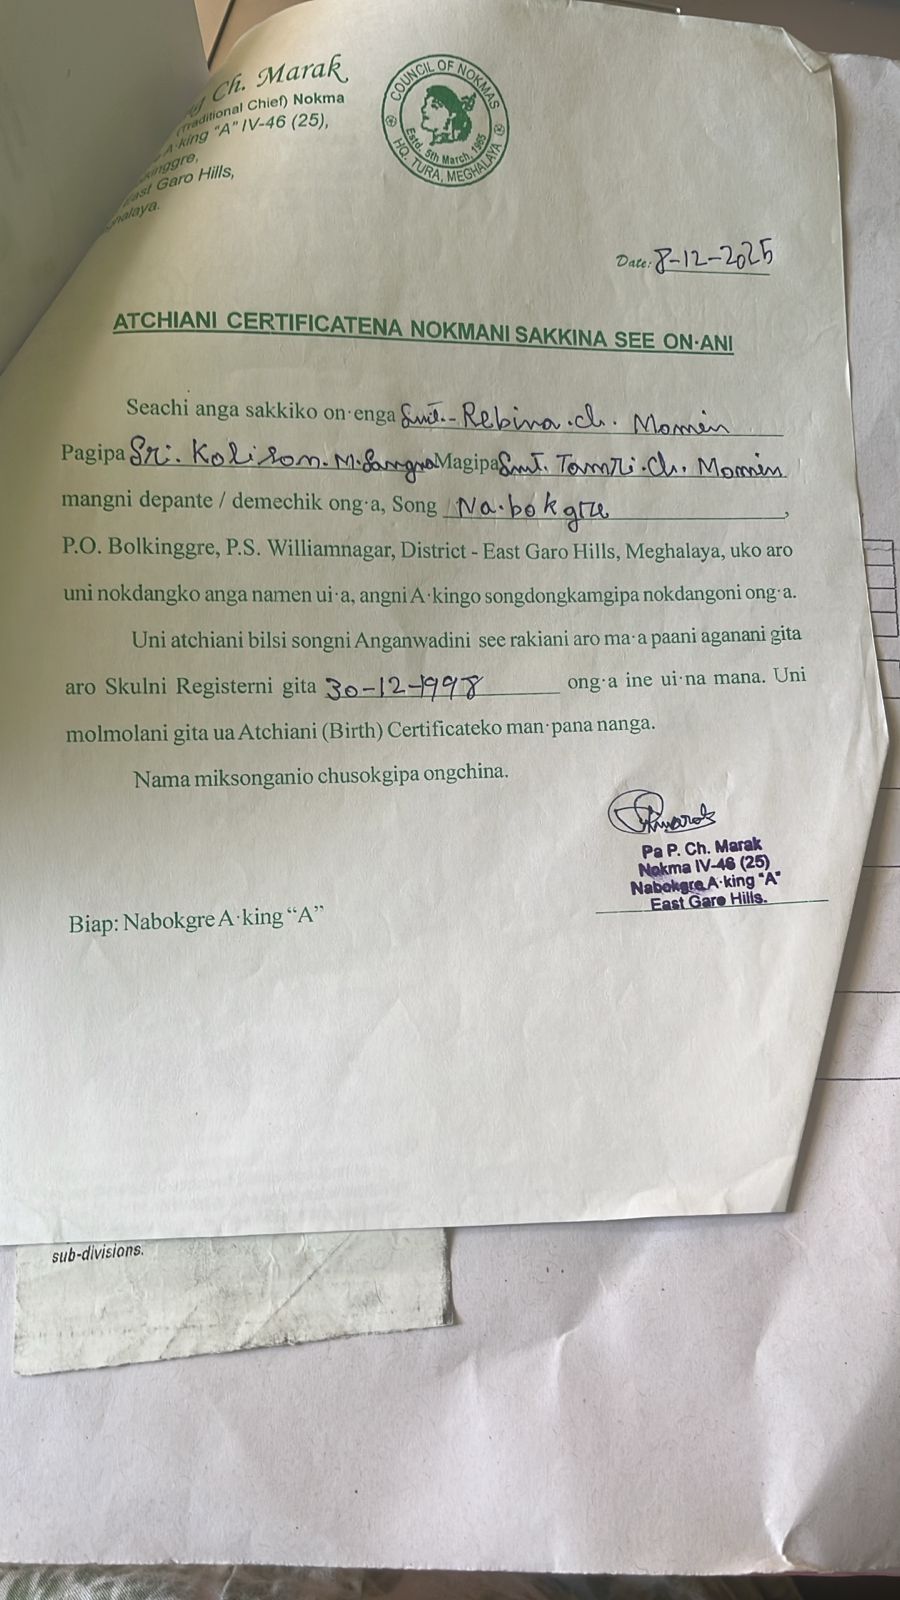 Ch. Marak
(Traditional Chief) Nokma
A·king "A" IV-46 (25),
East Garo Hills,
COUNCIL OF NOKMAS
Estd. 5th March, 1965
HQ. TURA, MEGHALAYA
Date: 8-12-2025
ATCHIANI CERTIFICATENA NOKMANI SAKKINA SEE ON·ANI
Seachi anga sakkiko on·enga Smt. Rebina .ch. Momin
Pagipa Sri. Kolison. M. Sangma Magipa Smt. Tamri .Ch. Momin
mangni depante / demechik ong·a, Song Na·bokgre,
P.O. Bolkinggre, P.S. Williamnagar, District - East Garo Hills, Meghalaya, uko aro
uni nokdangko anga namen ui·a, angni A·kingo songdongkamgipa nokdangoni ong·a.
Uni atchiani bilsi songni Anganwadini see rakiani aro ma·a paani aganani gita
aro Skulni Registerni gita 30-12-1998 ong·a ine ui·na mana. Uni
molmolani gita ua Atchiani (Birth) Certificateko man·pana nanga.
Nama miksonganio chusokgipa ongchina.
Pa P. Ch. Marak
Nokma IV-46 (25)
Nabokgre A·king "A"
East Garo Hills.
Biap: Nabokgre A·king “A”
sub-divisions.